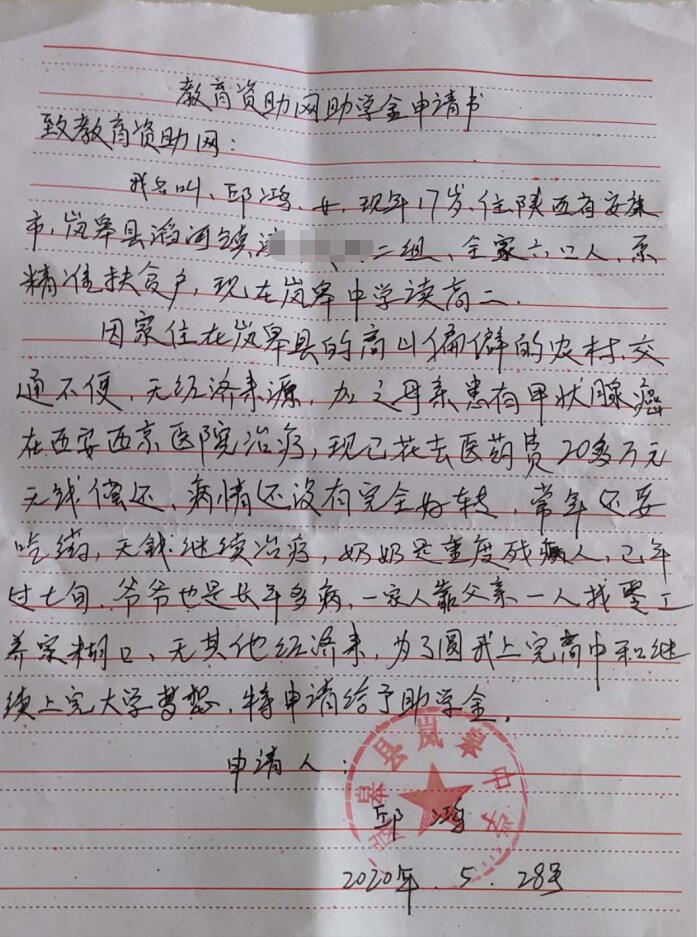 教育资助网助学金申请书
致教育资助网：
我名叫、邱鸿、女、现年17岁、住陕西省安康
市，岚皋县滔河镇 二组、全家六口人、系
精准扶贫户，现在岚皋中学读高二.
因家住在岚皋县的高山偏僻的农村、交
通不便，无经济来源，加之母亲患有甲状腺癌
在西安西京医院治疗，现已花去医药费20多万元
无钱偿还、病情还没有完全好转，常年还要
吃药，无钱继续治疗，奶奶是重度残疾人，已年
过七旬.爷爷也是长年多病，一家人靠父亲一人找零工
养家糊口、无其他经济来，为了圆我上完高中和继
续上完大学梦想，特申请给予助学金。
申请人：
邱鸿
2020年.5.28号
岚皋县岚皋中学